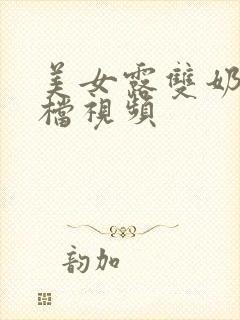 美女露雙奶
檔視頻
韵加